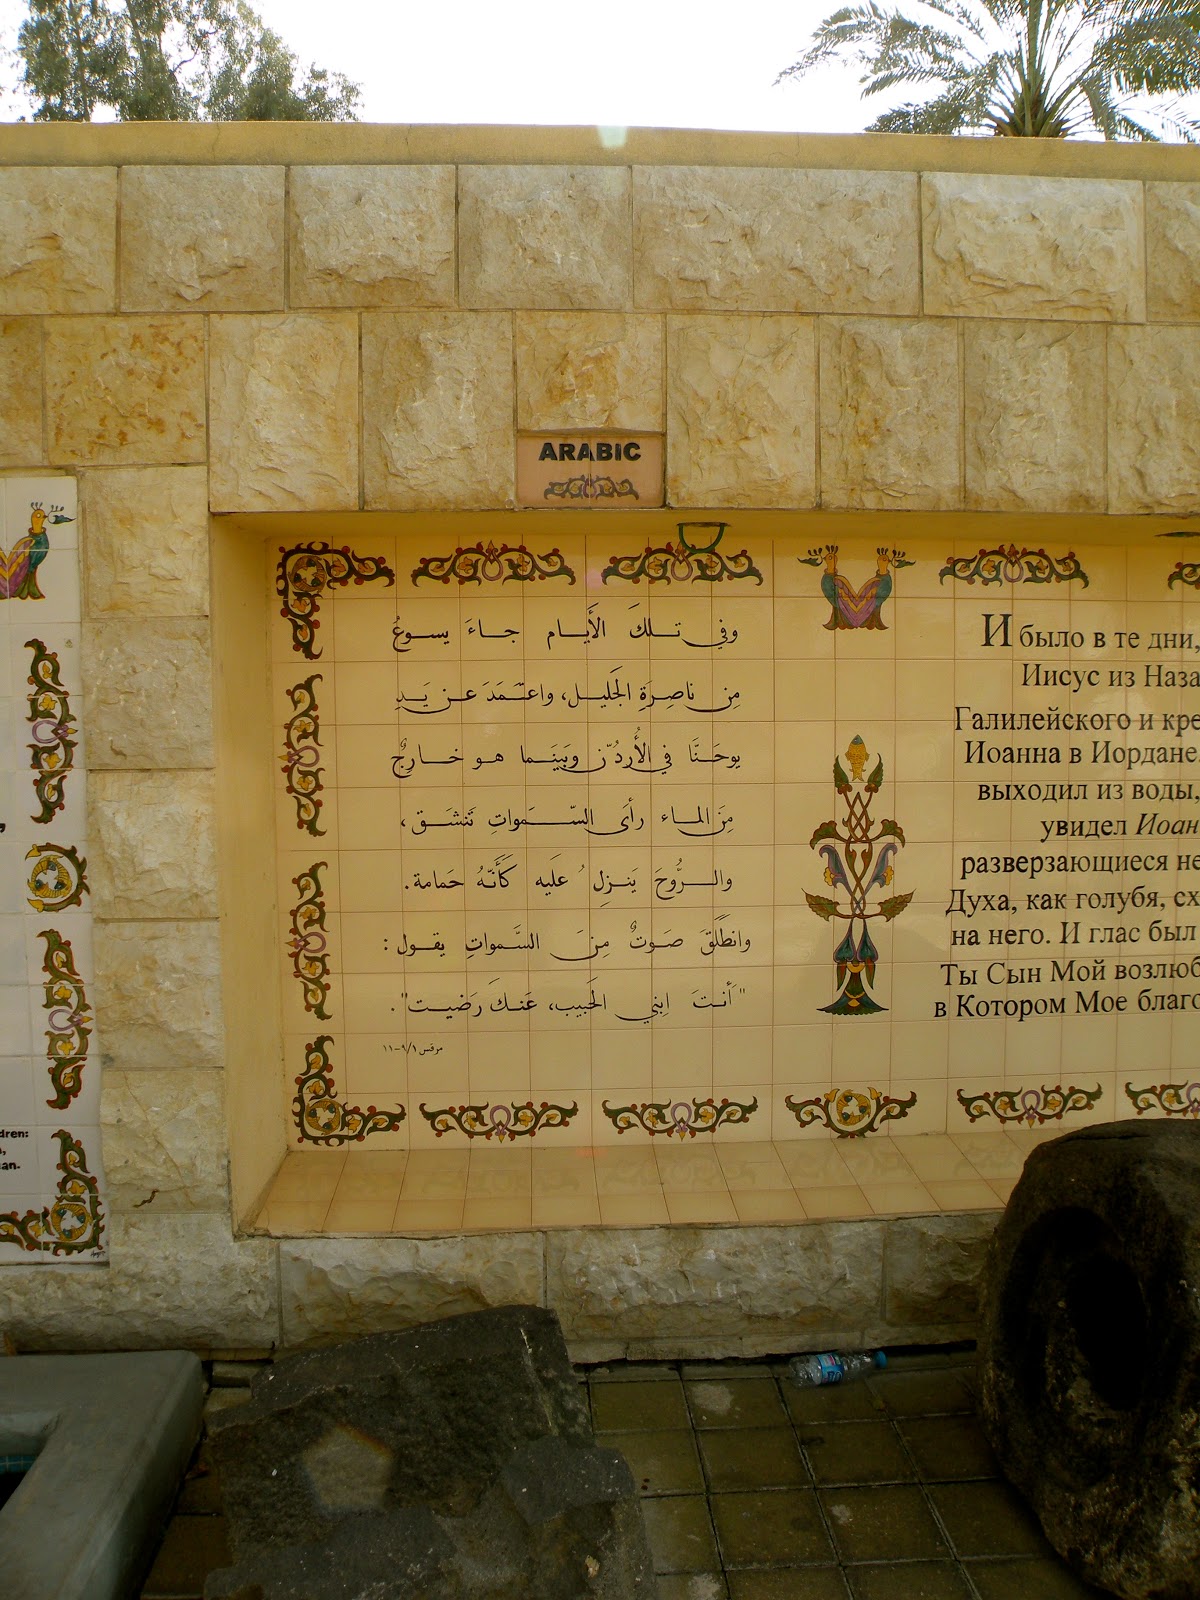 ARABIC
وفي تلكَ الأَيام جاءَ يسوعُ
مِن ناصِرَةِ الجَليل، واعتَمَدَ عن يَدِ
يوحَنَّا في الأُردُنّ وبَينَما هو خارِجٌ
مِنَ الماء رأى السَّمواتِ تَنشَق،
والرُّوحَ يَنزِلُ عليه كَأَنَّهُ حَمامة.
وانطَلَقَ صَوتٌ مِنَ السَّمواتِ يقول:
"أَنتَ ابني الحَبيب، عَنكَ رَضيت".
مرقس ٩/١-١١
И было в те дни,
Иисус из Наза
Галилейского и кре
Иоанна в Иордане.
выходил из воды,
увидел Иоан
разверзающиеся не
Духа, как голубя, сх
на него. И глас был
Ты Сын Мой возлюб
в Котором Мое благо
dren:
an-